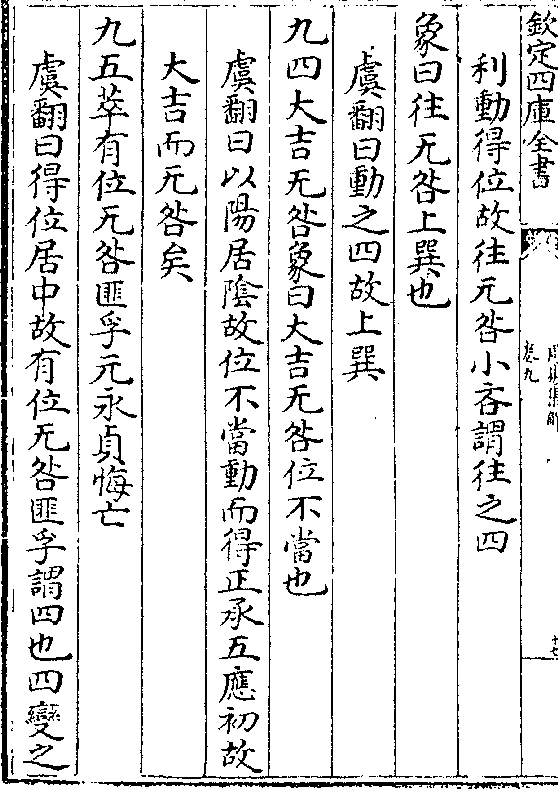 欽定四庫全書
卷九
利動得位故往无咎小吝謂往之四
象曰往无咎上巽也
虞翻曰動之四故上巽
九四大吉无咎象曰大吉无咎位不當也
虞翻曰以陽居陰故位不當動而得正承五應初故
大吉而无咎矣
九五萃有位无咎匪孚元永貞悔亡
虞翻曰得位居中故有位无咎匪孚謂四也四變之